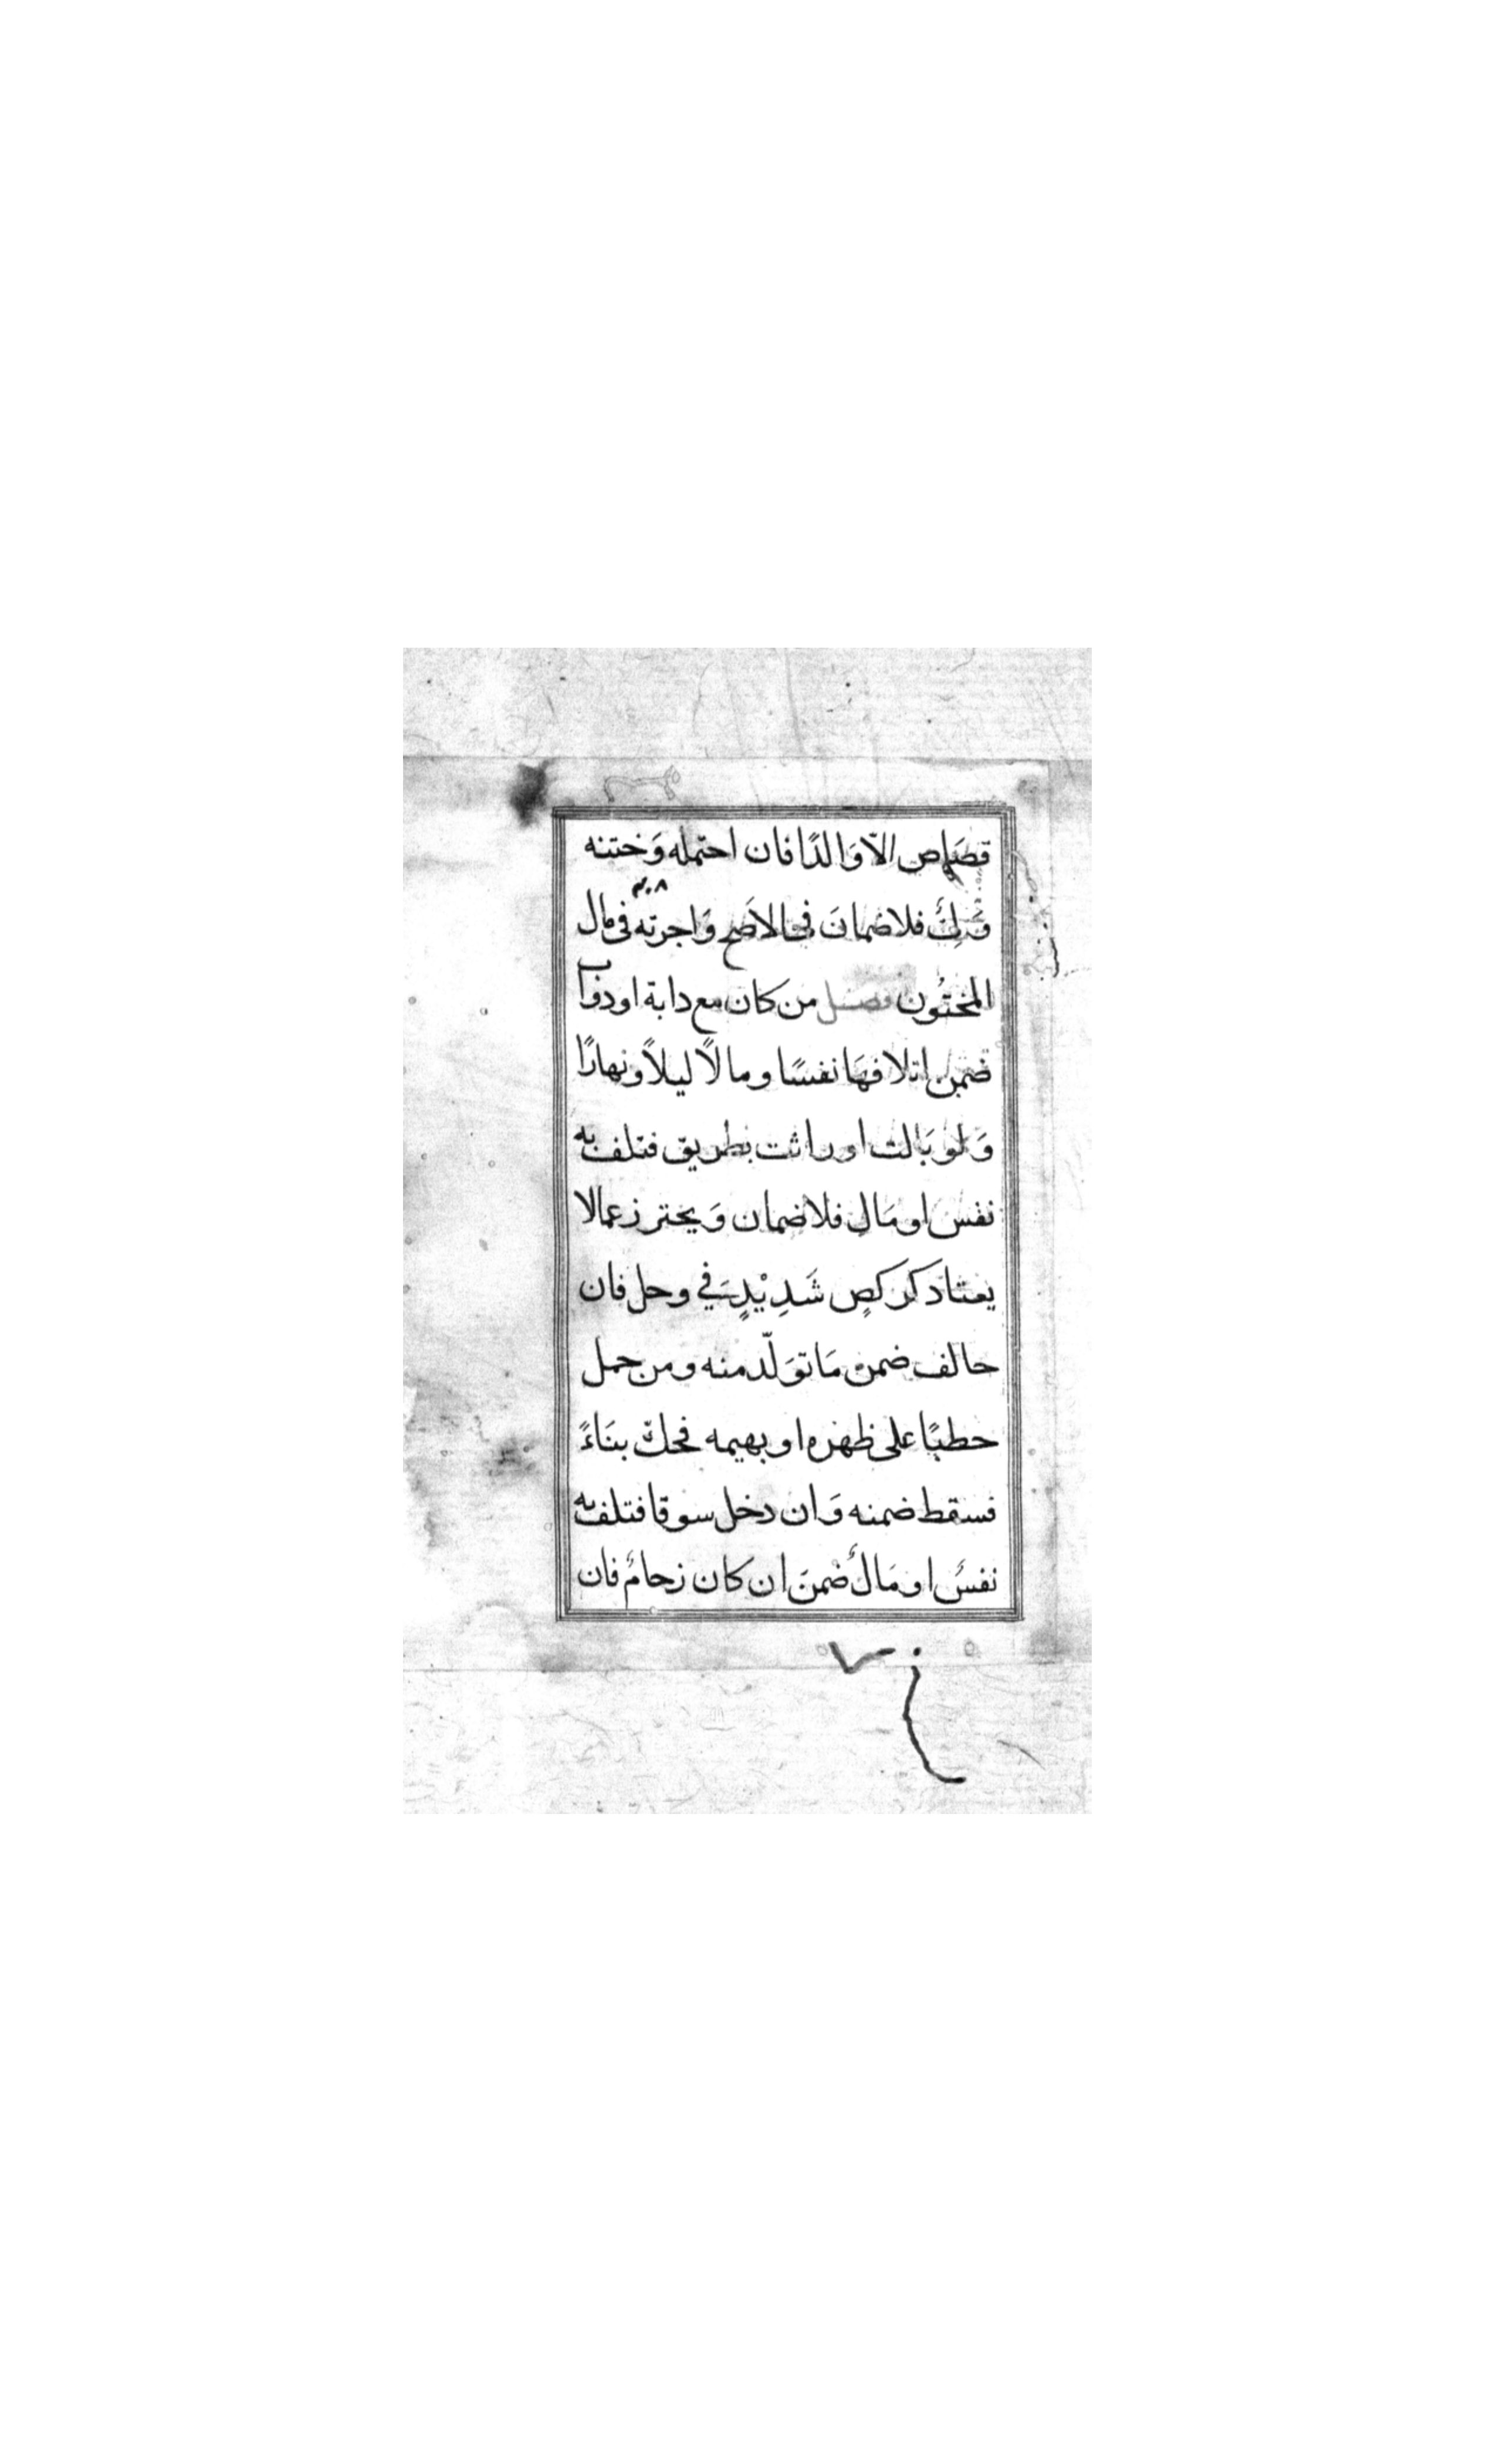 قصَاص الّا وَالدًا فان احتمله وَختنه
وَلِيٌّ فلا ضمانَ في الاصَح وَاجرته في مال
المختُون فصل من كان مع دابة او دواب
ضمن اتلافهَا نفسًا ومالًا ليلاً ونهارًا
وَلو بَالت او راثت بطريق فتلف به
نفس او مَال فلا ضمان وَيحترز عمالا
يعتاد كركضٍ شَدِيْدٍ في وحل فان
خالف ضمن مَا توَلّد منه ومن حمل
حطبًا على ظهره او بهيمه فحكّ بنَاءً
فسقط ضمنه وَان دخل سوقا فتلف به
نفسٌ او مَالٌ ضمنَ ان كان زحامٌ فان